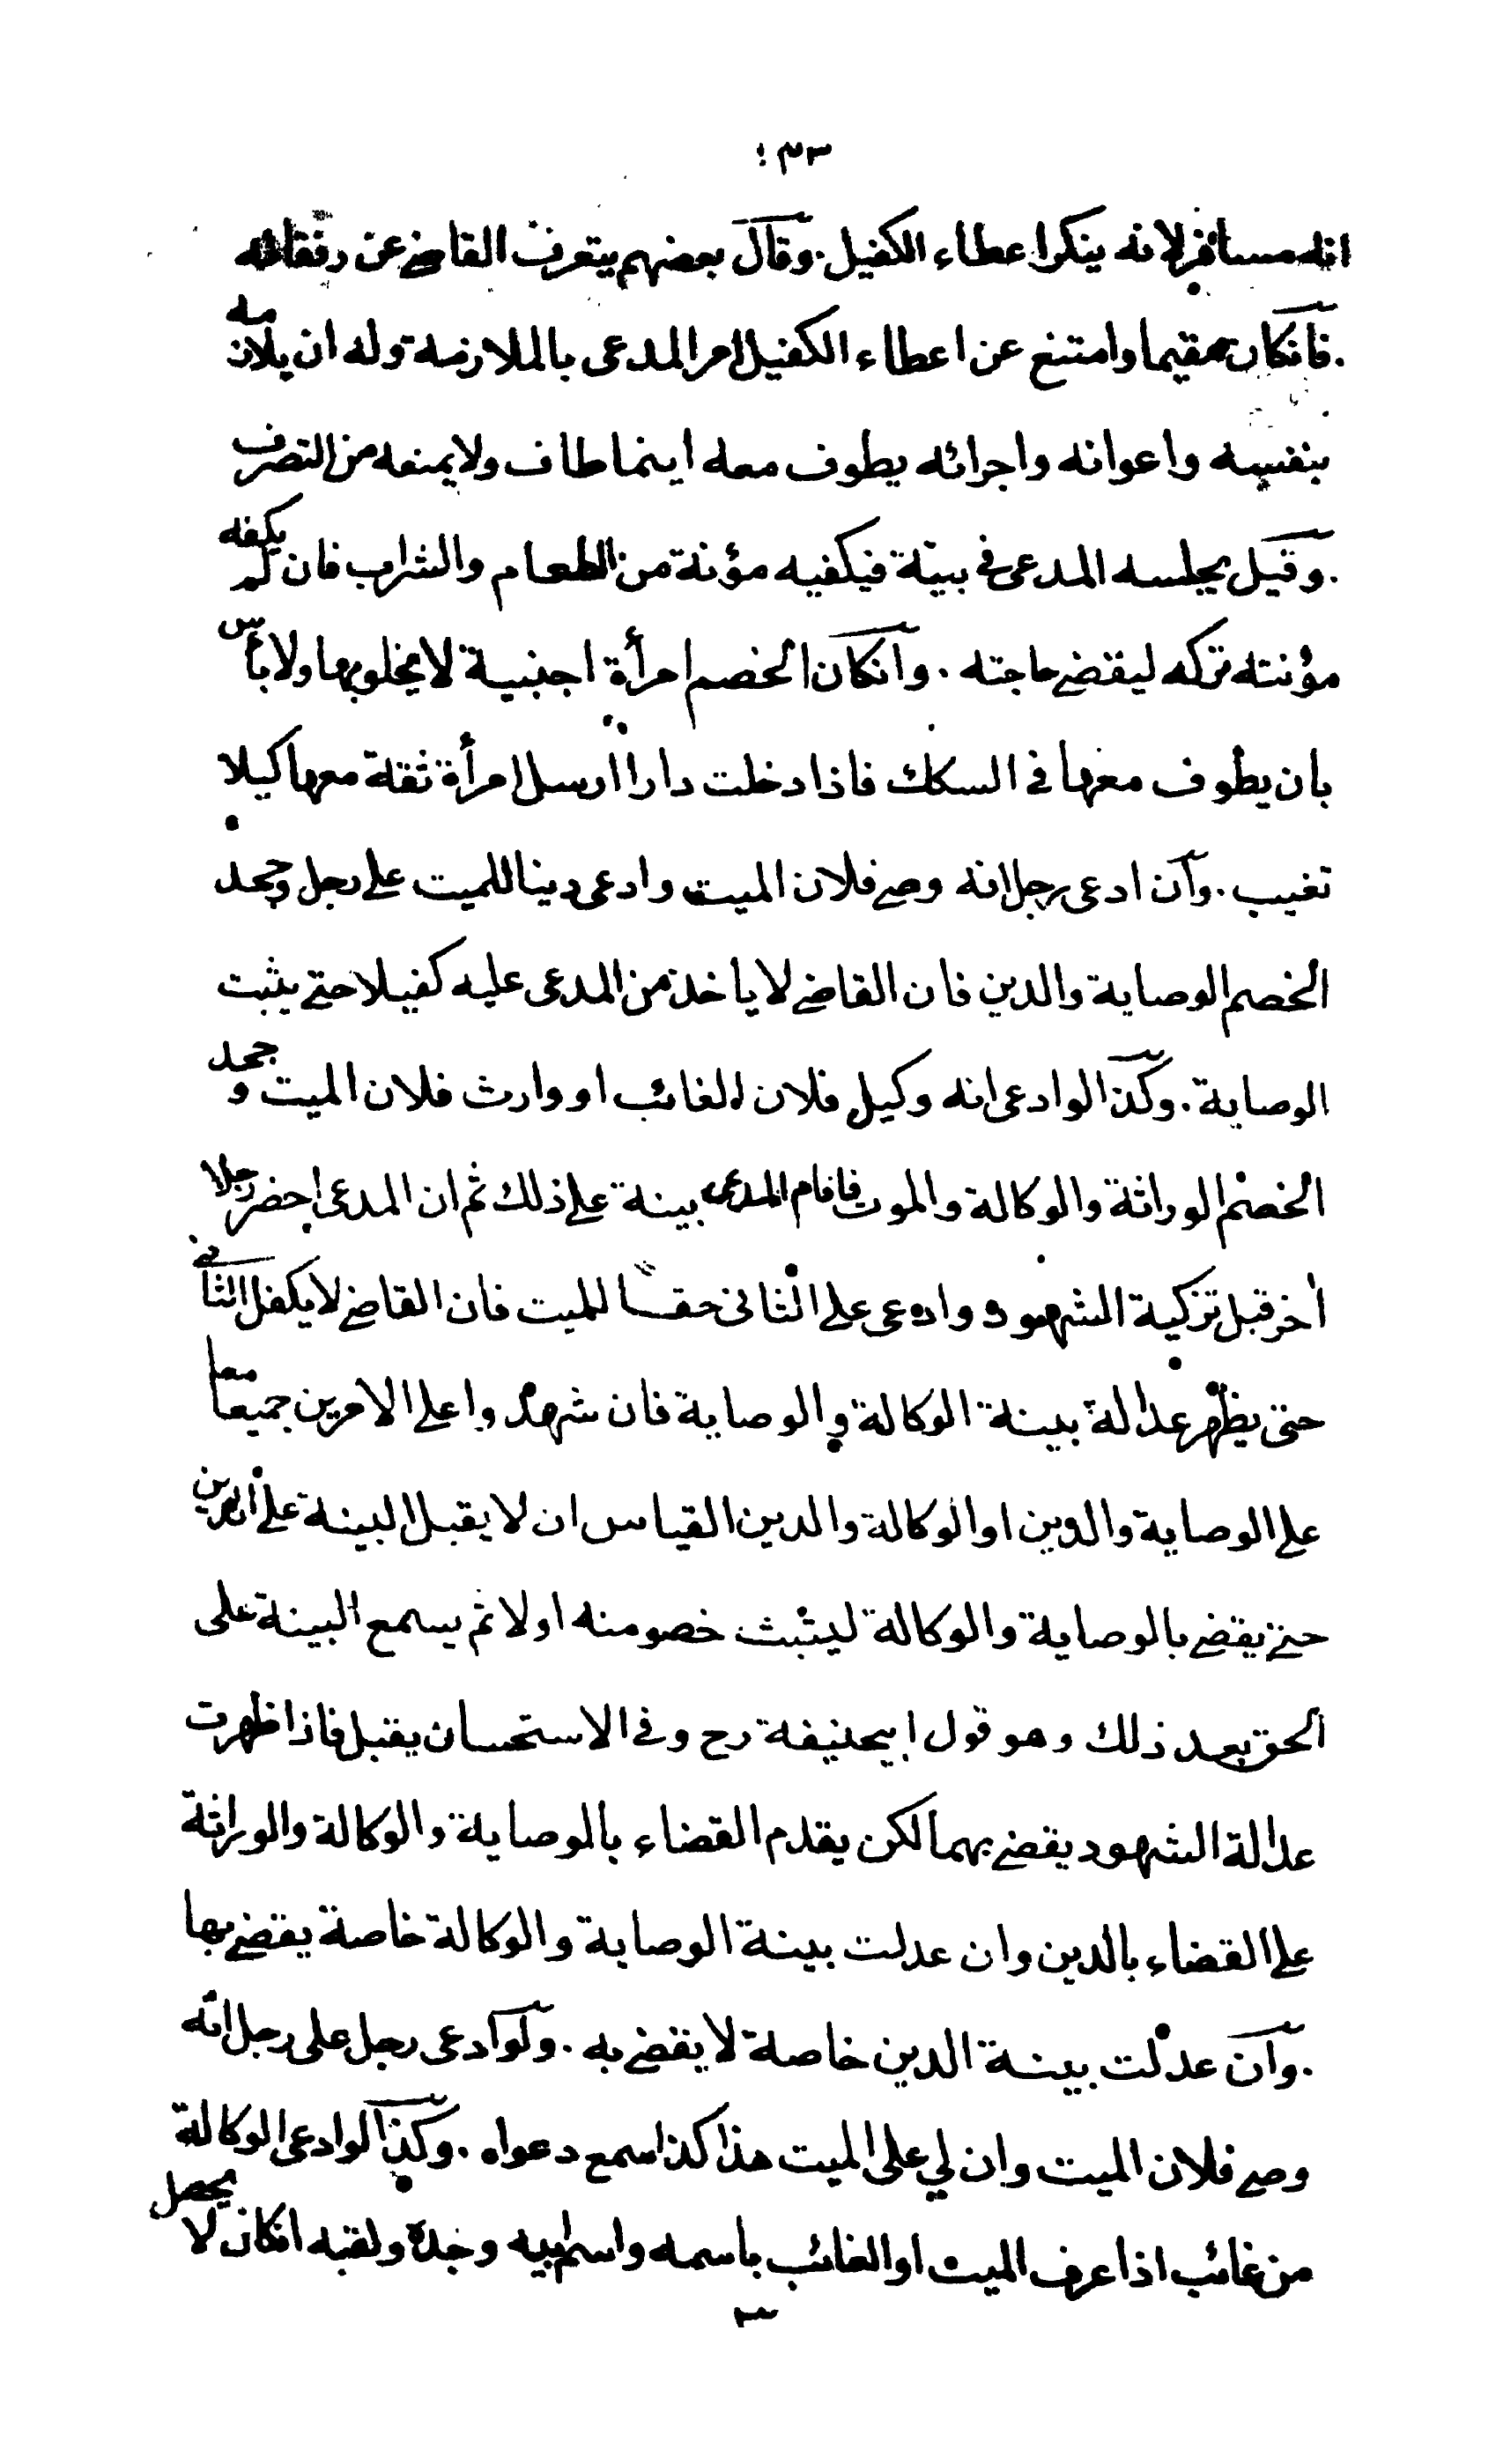 ٤٣
انه مسافر لانه ينكر اعطاء الكفيل . وقال بعضهم يتعرف القاضے عن رفقائه
. فانكان مقيما وامتنع عن اعطاء الكفيل امر المدعى بالملازمة وله ان يلازمه
بنفسه واعوانه واجرائه يطوف معه اينما طاف ولا يمنعه من التصرف
. وقيل يجلسه المدعى فى بيتة فيكفيه مؤنة من الطعام والشراب فان لم يكفه
مؤنته تركه ليقضے حاجته . وانكان الخصم امرأة اجنبية لا يخلو بها ولا بأس
بان يطوف معها فى السكك فاذا دخلت دارا ارسل امرأة ثقة معها كيلا
تغيب . وان ادعى رجل انه وصے فلان الميت وادعى دينا للميت علے رجل وجحد
الخصم الوصاية والدين فان القاضے لا ياخذ من المدعى عليه كفيلا حتے يثبت
الوصاية . وكذا لو ادعى انه وكيل فلان الغائب او وارث فلان الميت وجحد
الخصم الوراثة والوكالة والموت فاقام المدعى بينة علے ذلك ثم ان المدعى احضر رجلا
اخر قبل تزكية الشهود وادعى علے الثانى حقا للميت فان القاضے لا يكفل الثانے
حتى يظهر عدالة بينة الوكالة والوصاية فان شهدوا علے الامرين جميعا معا
علے الوصاية والدين او الوكالة والدين القياس ان لا يقبل البينة علے الدين
حتے يقضے بالوصاية والوكالة ليثبت خصومته اولا ثم يسمع البينة على
الحق بعد ذلك وهو قول ابيحنيفة رح وفے الاستحسان يقبل فاذا ظهرت
عدالة الشهود يقضے بهما لكن يقدم القضاء بالوصاية والوكالة والوراثة
علے القضاء بالدين وان عدلت بينة الوصاية والوكالة خاصة يقضے بها
. وان عدلت بينة الدين خاصة لا يقضے به . ولو ادعى رجل على رجل انه
وصے فلان الميت وان لي على الميت هذا كذا سمع دعواه . وكذا لو ادعى الوكالة
من غائب اذا عرف الميت او الغائب باسمه واسم ابيه وجده ولقبه انكان لا يحصل